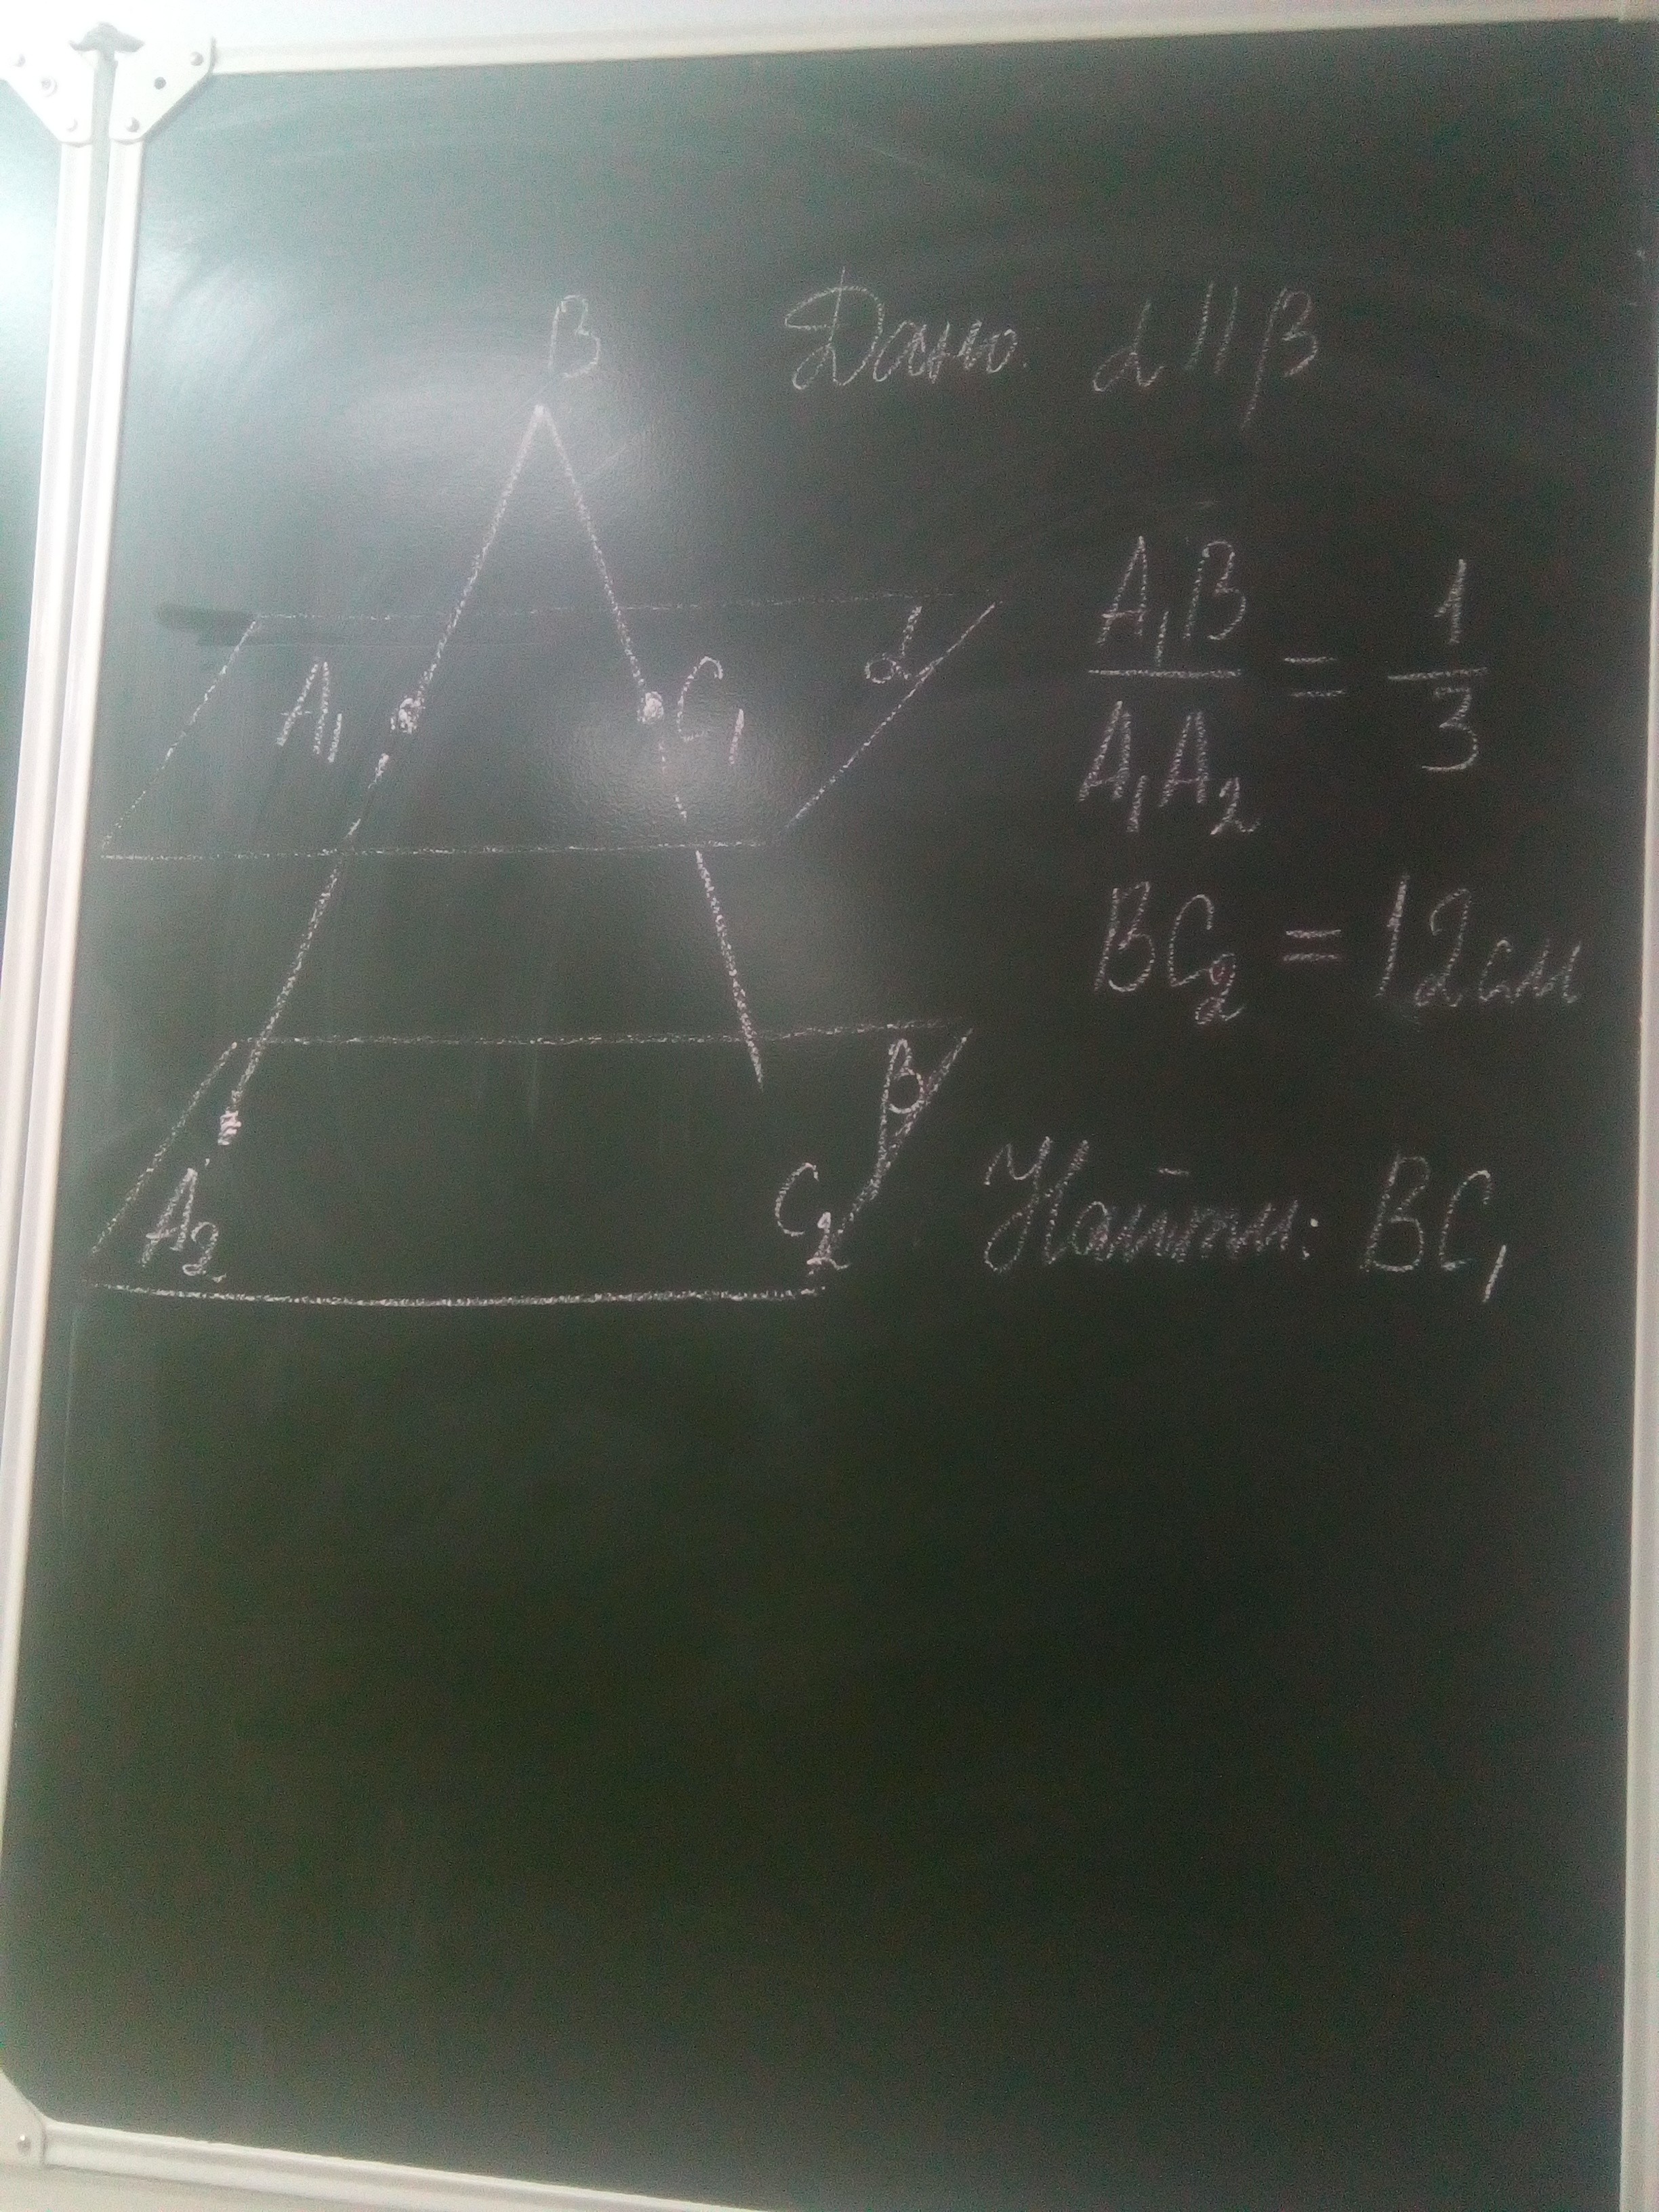 B
Дано. α || β
A₁ C₁ α
A₁B / A₁A₂ = 1/3
BC₂ = 12 см
β
A₂ C₂
Найти: BC₁